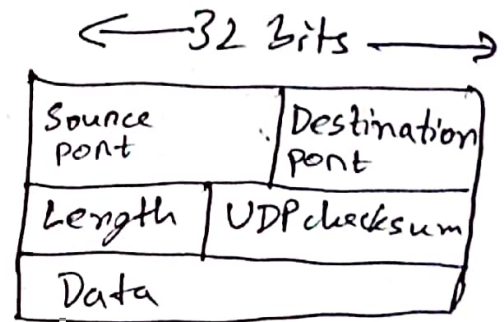 32 Bits
Source Destination
port port
Length UDP checksum
Data